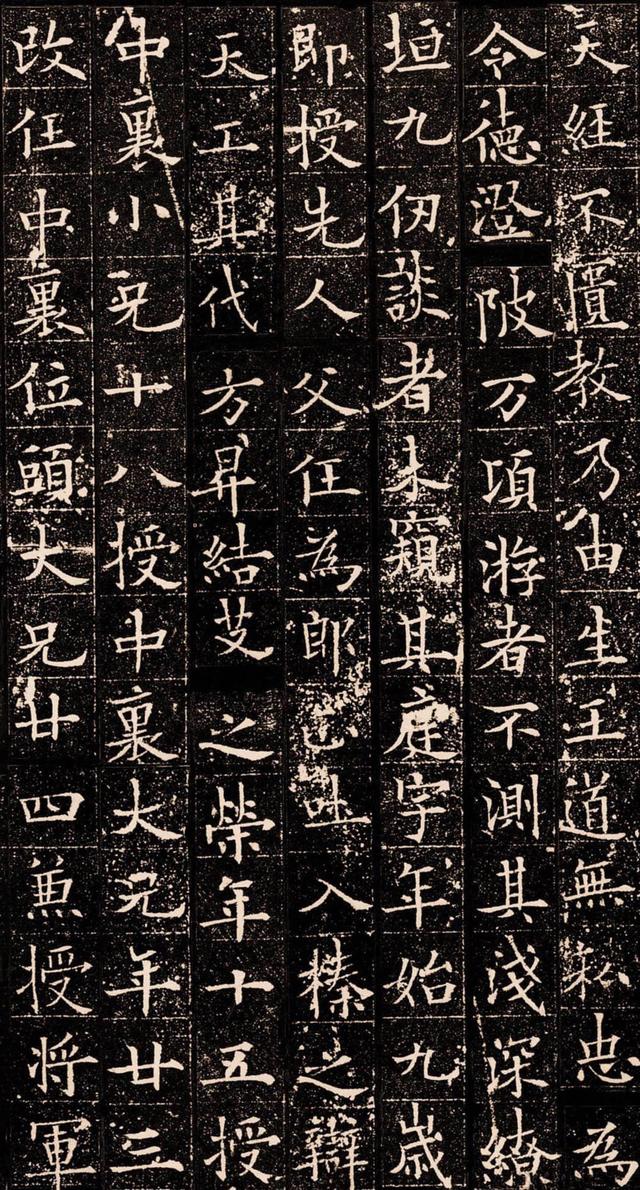 天經不匱教乃由生王道無私忠為
令德澄陂万頃游者不測其淺深繚
垣九仞談者未窺其庭宇年始九歲
即授先人父任為郎正吐入榛之辯
天工其代方昇結艾之榮年十五授
中裏小兄十八授中裏大兄年廿三
改任中裏位頭大兄廿四兼授将軍